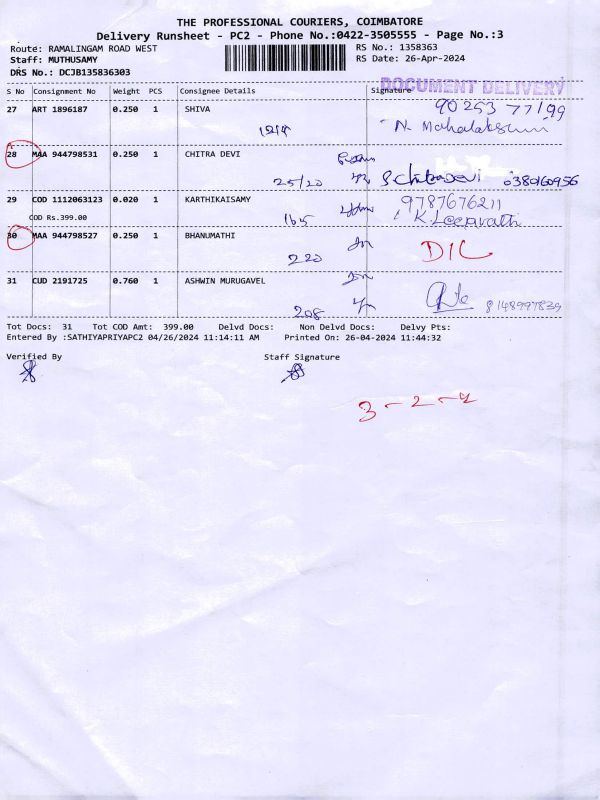 THE PROFESSIONAL COURIERS, COIMBATORE
Delivery Runsheet - PC2 - Phone No.:0422-3505555 - Page No.:3
Route: RAMALINGAM ROAD WEST
RS No.: 1358363
Staff: MUTHUSAMY
RS Date: 26-Apr-2024
DRS No.: DCJB135836303
DOCUMENT DELIVERY
S No Consignment No Weight PCS Consignee Details Signature
27 ART 1896187 0.250 1 SHIVA 90253 77199
N. Mahalakshmi
28 MAA 944798531 0.250 1 CHITRA DEVI
25/20 S Chitradevi
29 COD 1112063123 0.020 1 KARTHIKAISAMY 9787676211
COD Rs.399.00 165
30 MAA 944798527 0.250 1 BHANUMATHI
220 D/L
31 CUD 2191725 0.760 1 ASHWIN MURUGAVEL
208 8148997839
Tot Docs: 31 Tot COD Amt: 399.00 Delvd Docs: Non Delvd Docs: Delvy Pts:
Entered By :SATHIYAPRIYAPC2 04/26/2024 11:14:11 AM Printed On: 26-04-2024 11:44:32
Verified By Staff Signature